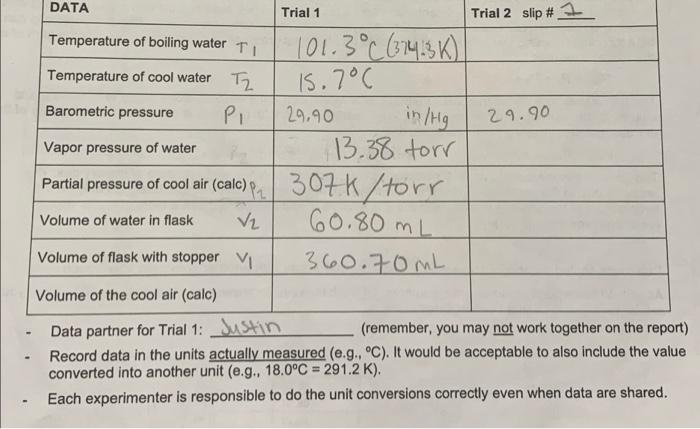 DATA Trial 1 Trial 2 slip # 2
Temperature of boiling water T1 101.3°C (374.3K)
Temperature of cool water T2 15.7°C
Barometric pressure P1 29.90 in/Hg 29.90
Vapor pressure of water 13.38 torr
Partial pressure of cool air (calc) P2 307K/torr
Volume of water in flask V2 60.80 mL
Volume of flask with stopper V1 360.70mL
Volume of the cool air (calc)
- Data partner for Trial 1: Justin (remember, you may not work together on the report)
- Record data in the units actually measured (e.g., °C). It would be acceptable to also include the value
converted into another unit (e.g., 18.0°C = 291.2 K).
- Each experimenter is responsible to do the unit conversions correctly even when data are shared.